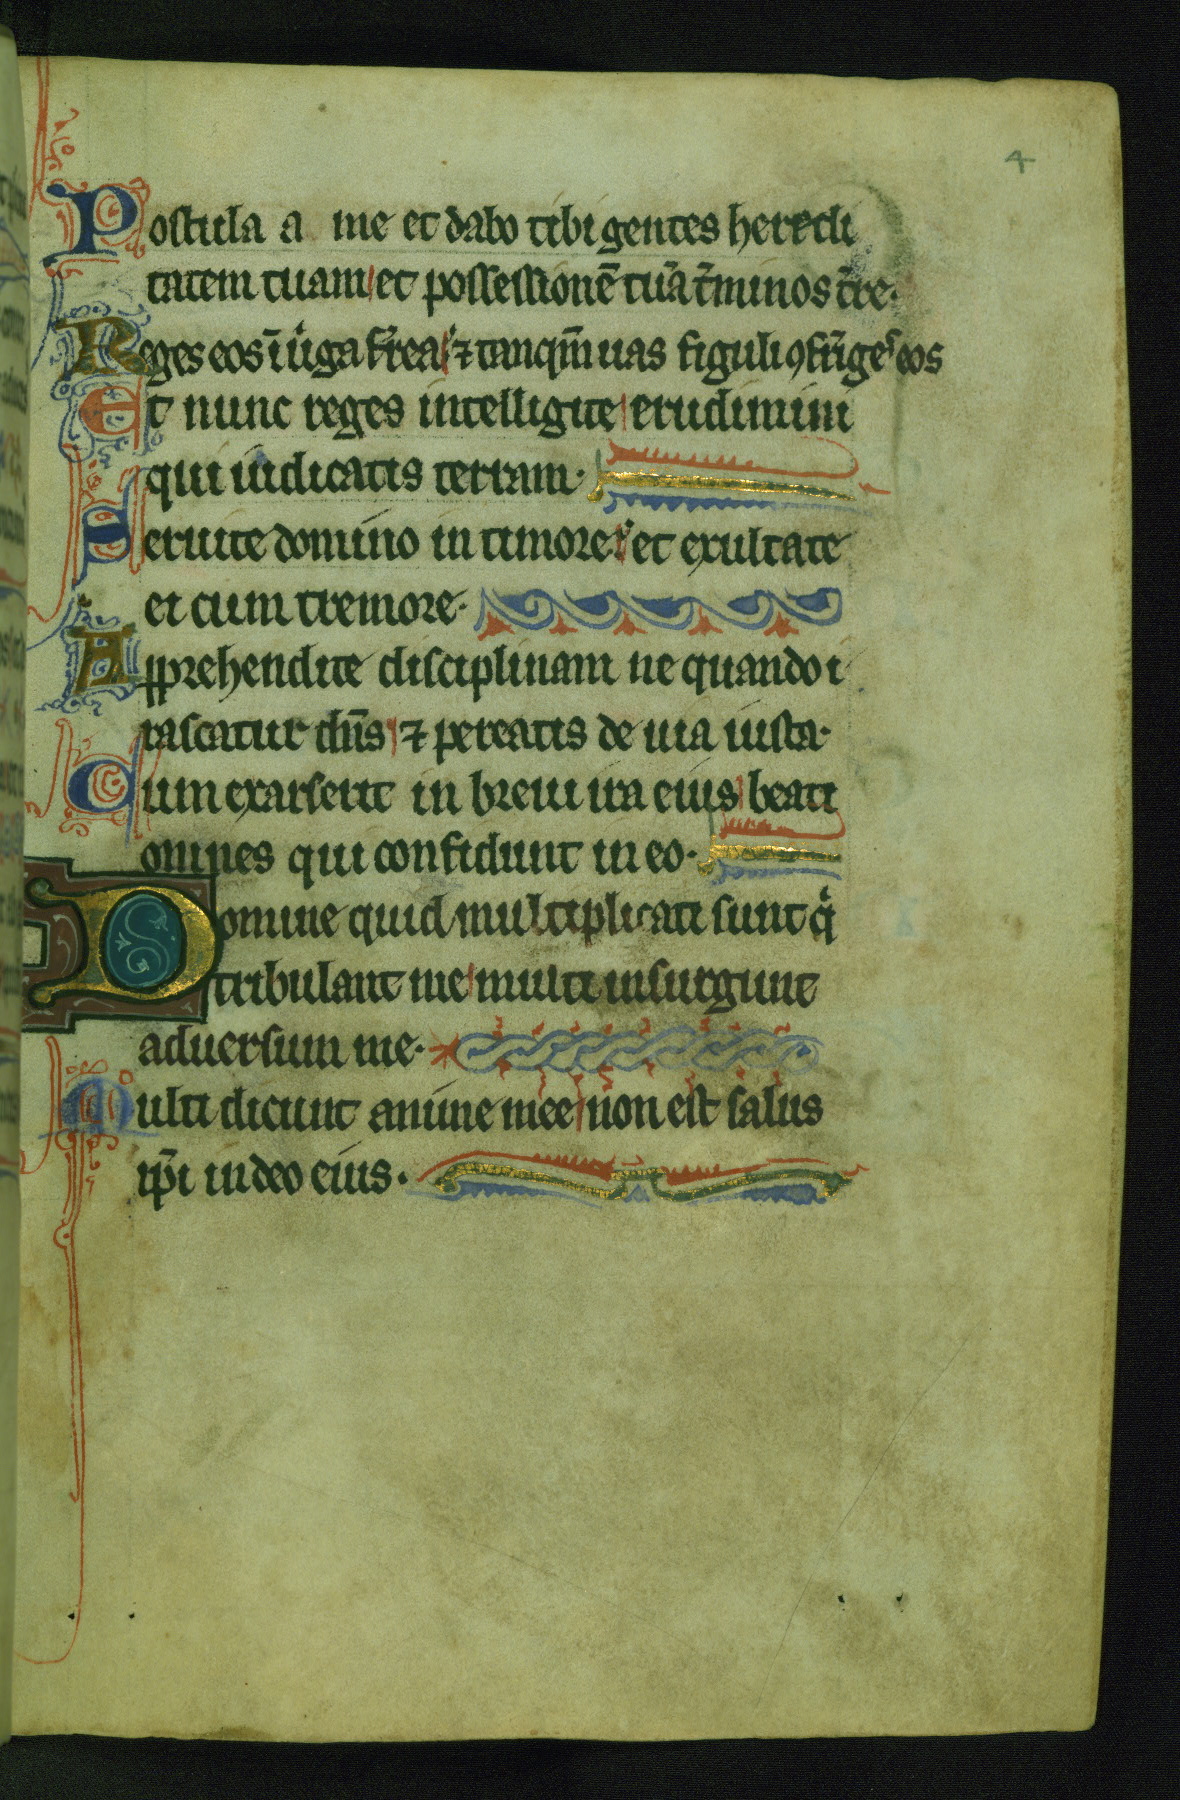 4
Postula a me et dabo tibi gentes heredi
tatem tuam et possessionē tuā t̄minos t̄re.
Reges eos ī uͥga ferrea ⁊ tanqm̄ uas figuli ꝯfrīges eos
Et nunc reges intelligite erudimini
qui iudicatis terram.
Seruite domino in timore et exultate
ei cum tremore.
Apprehendite disciplinam ne quando i
rascatur dn̄s ⁊ pereatis de uia iusta.
Cum exarserit in breui ira eius beati
omnes qui confidunt in eo.
Domine quid multiplicati sunt qͥ
tribulant me multi insurgunt
aduersum me.
Multi dicunt anime mee non est salus
ip̄i in deo eius.